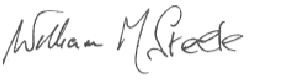 William M Steele